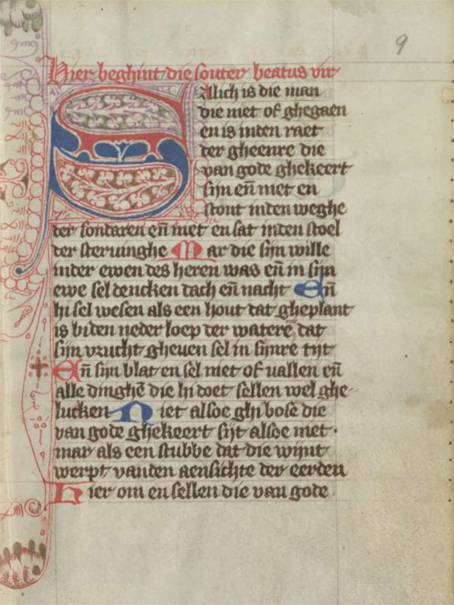 9
Hier beghint die souter beatus vir
Salich is die man
die niet of ghegaen
en is inden raet
der gheenre die
van gode ghekeert
sijn eñ niet en
stont inden weghe
der sondaren eñ niet en sat inden stoel
der steruinghe Mar die sijn wille
inder ewen des heren was eñ in sijn
ewe sel dencken dach eñ nacht Eñ
hi sel wesen als een hout dat gheplant
is biden neder loep der waterē dat
sijn vrucht gheuen sel in sijnre tijt
Eñ sijn blat en sel niet of vallen eñ
alle dinghē die hi doet sellen wel ghe
lucken Niet alsoe ghi bose die
van gode ghekeert sijt alsoe niet·
mar als een stubbe dat die wijnt
werpt vanden aensichte der eerden
Hier om en sellen die van gode